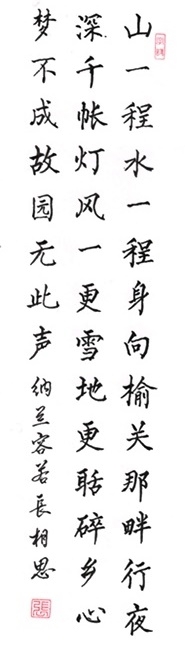 山一程水一程身向榆关那畔行夜
深千帐灯风一更雪地更聒碎乡心
梦不成故园无此声
纳兰容若長相思